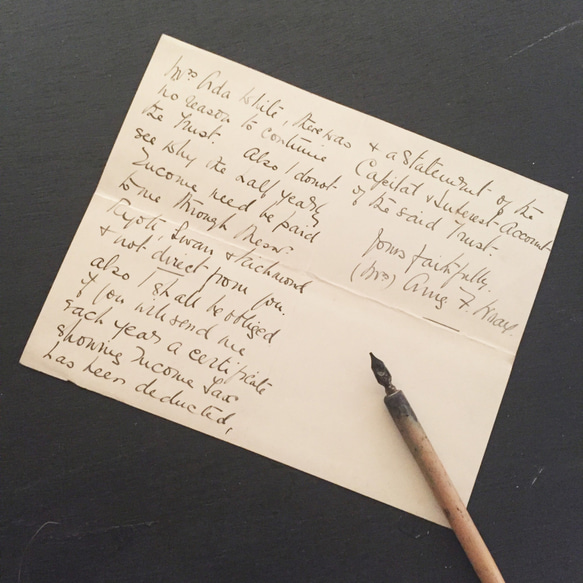 Mrs Ada White, there was
no reason to continue
the Trust. Also I donot
see why the half yearly
Income need be paid
to me through Messrs
Tyott, Swan & Richmond
& not direct from you.
also I shall be obliged
if you will send me
each year a certificate
showing Income Tax
has been deducted,
& a statement of the
Capital & Interest-Account
of the said Trust.
Yours faithfully.
(Mrs) F.